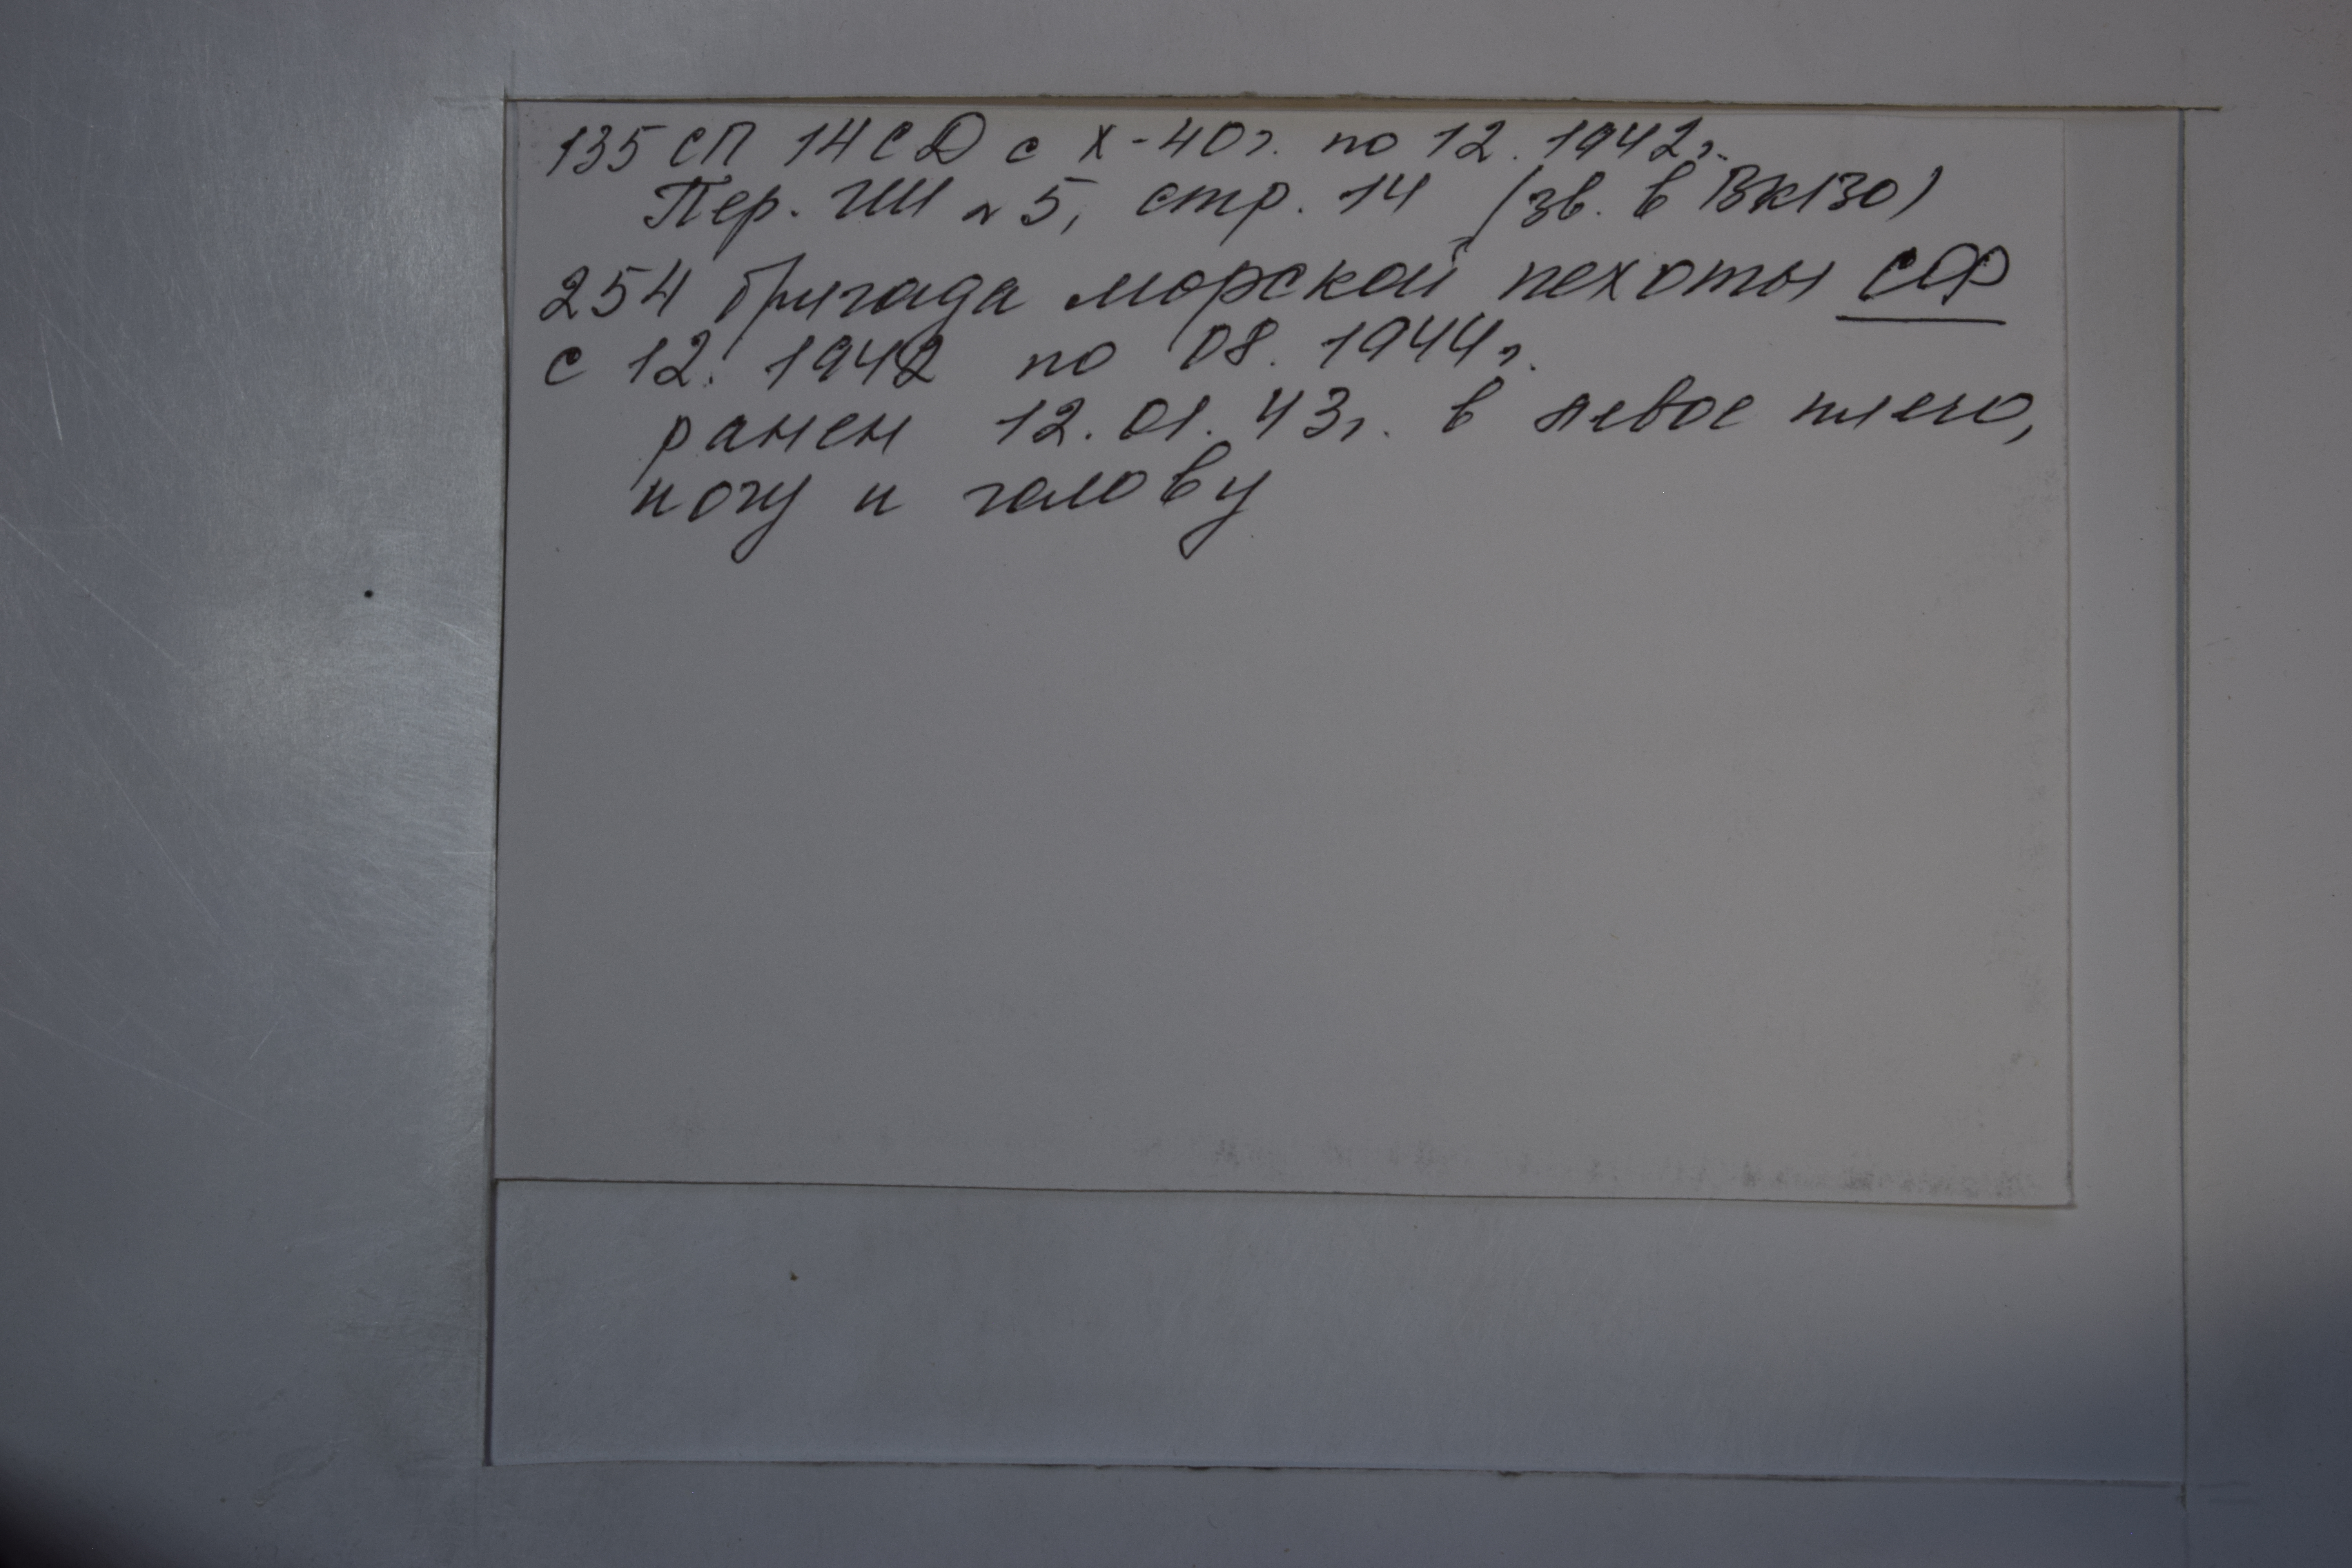 135 СП 14 СД с X-40г. по 12.1942г.
Пер. ГШ № 5, стр. 14 (зв. в ВК130)
254 бригада морской пехоты СФ
с 12.1942 по 08.1944г.
ранен 12.01.43г. в левое плечо,
ногу и голову